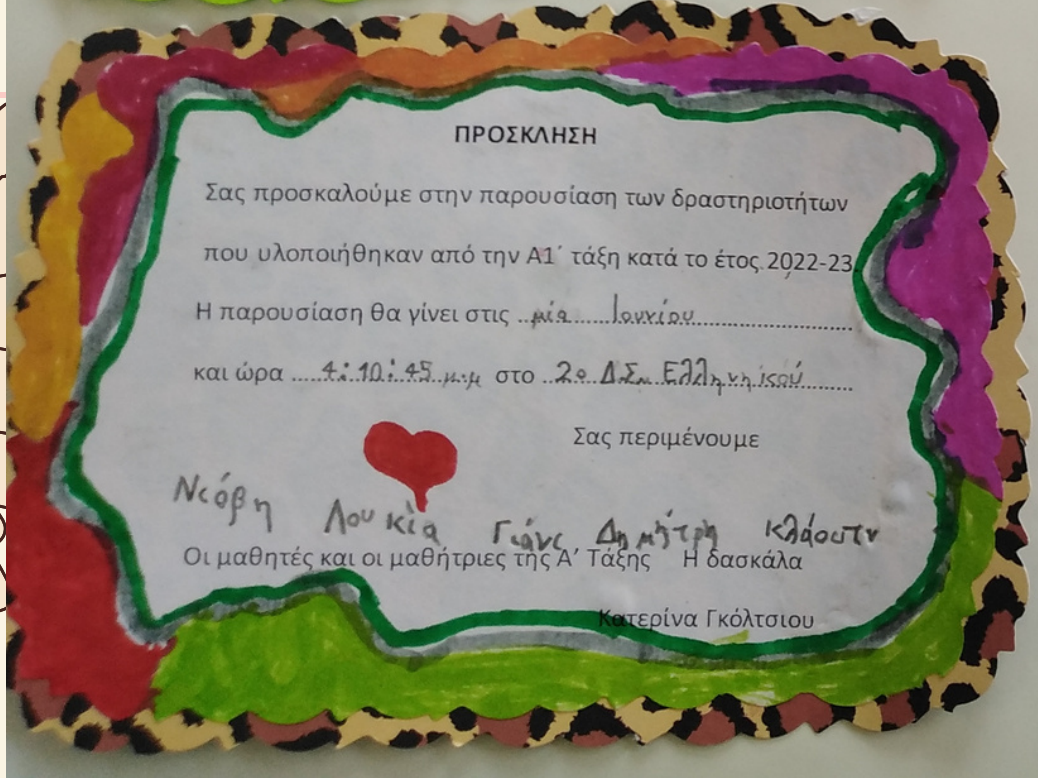 ΠΡΟΣΚΛΗΣΗ
Σας προσκαλούμε στην παρουσίαση των δραστηριοτήτων
που υλοποιήθηκαν από την Α1΄ τάξη κατά το έτος 2022-23
Η παρουσίαση θα γίνει στις ..μία.....Ιουνίου...........................
και ώρα .....4:10:45 μ.μ στο ..2ο Δ.Σ. Ελληνηικού..........
Σας περιμένουμε
Νιόβη Λουκία Γιάνς Δημήτρη
Οι μαθητές και οι μαθήτριες της Α’ Τάξης Η δασκάλα
Κατερίνα Γκόλτσιου